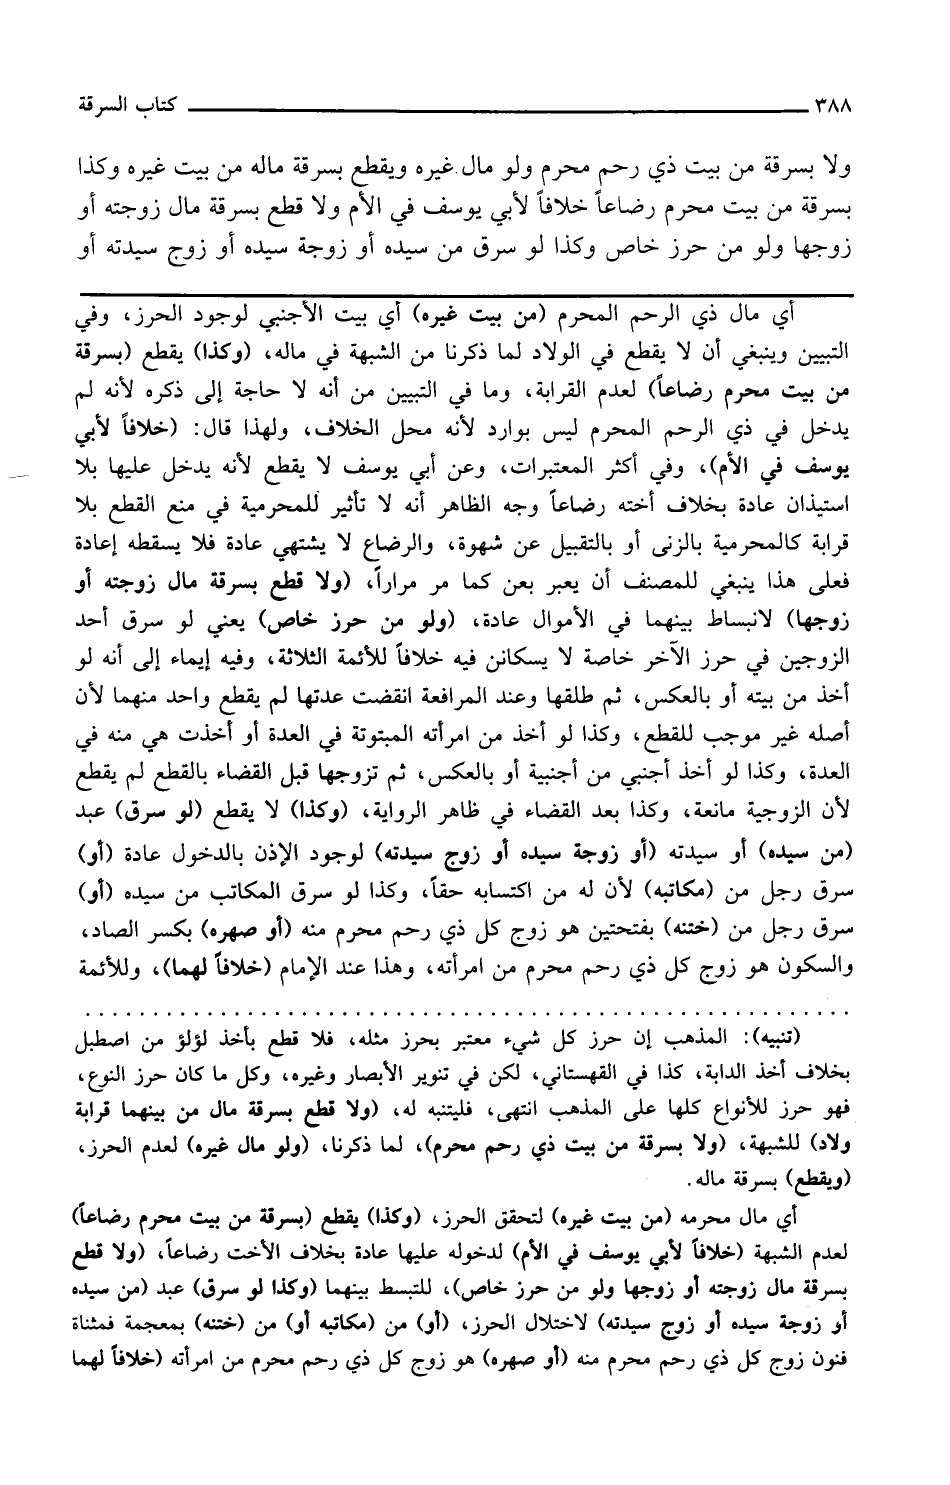 ٣٨٨ كتاب السرقة
ولا بسرقة من بيت ذي رحم محرم ولو مال غيره ويقطع بسرقة ماله من بيت غيره وكذا
بسرقة من بيت محرم رضاعاً خلافاً لأبي يوسف في الأم ولا قطع بسرقة مال زوجته أو
زوجها ولو من حرز خاص وكذا لو سرق من سيده أو زوجة سيده أو زوج سيدته أو
أي مال ذي الرحم المحرم (من بيت غيره) أي بيت الأجنبي لوجود الحرز، وفي
التبيين وينبغي أن لا يقطع في الولاد لما ذكرنا من الشبهة في ماله، (وكذا) يقطع (بسرقة
من بيت محرم رضاعاً) لعدم القرابة، وما في التبيين من أنه لا حاجة إلى ذكره لأنه لم
يدخل في ذي الرحم المحرم ليس بوارد لأنه محل الخلاف، ولهذا قال: (خلافاً لأبي
يوسف في الأم)، وفي أكثر المعتبرات، وعن أبي يوسف لا يقطع لأنه يدخل عليها بلا
استيذان عادة بخلاف أخته رضاعاً وجه الظاهر أنه لا تأثير للمحرمية في منع القطع بلا
قرابة كالمحرمية بالزنى أو بالتقبيل عن شهوة، والرضاع لا يشتهي عادة فلا يسقطه إعادة
فعلى هذا ينبغي للمصنف أن يعبر بعن كما مر مراراً، (ولا قطع بسرقة مال زوجته أو
زوجها) لانبساط بينهما في الأموال عادة، (ولو من حرز خاص) يعني لو سرق أحد
الزوجين في حرز الآخر خاصة لا يسكانن فيه خلافاً للأئمة الثلاثة، وفيه إيماء إلى أنه لو
أخذ من بيته أو بالعكس، ثم طلقها وعند المرافعة انقضت عدتها لم يقطع واحد منهما لأن
أصله غير موجب للقطع، وكذا لو أخذ من امرأته المبتوتة في العدة أو أخذت هي منه في
العدة، وكذا لو أخذ أجنبي من أجنبية أو بالعكس، ثم تزوجها قبل القضاء بالقطع لم يقطع
لأن الزوجية مانعة، وكذا بعد القضاء في ظاهر الرواية، (وكذا) لا يقطع (لو سرق) عبد
(من سيده) أو سيدته (أو زوجة سيده أو زوج سيدته) لوجود الإذن بالدخول عادة (أو)
سرق رجل من (مكاتبه) لأن له من اكتسابه حقاً، وكذا لو سرق المكاتب من سيده (أو)
سرق رجل من (ختنه) بفتحتين هو زوج كل ذي رحم محرم منه (أو صهره) بكسر الصاد،
والسكون هو زوج كل ذي رحم محرم من امرأته، وهذا عند الإمام (خلافاً لهما)، وللأئمة
(تنبيه): المذهب إن حرز كل شيء معتبر بحرز مثله، فلا قطع بأخذ لؤلؤ من اصطبل
بخلاف أخذ الدابة، كذا في القهستاني، لكن في تنوير الأبصار وغيره، وكل ما كان حرز النوع،
فهو حرز للأنواع كلها على المذهب انتهى، فليتنبه له، (ولا قطع بسرقة مال من بينهما قرابة
ولاد) للشبهة، (ولا بسرقة من بيت ذي رحم محرم)، لما ذكرنا، (ولو مال غيره) لعدم الحرز،
(ويقطع) بسرقة ماله.
أي مال محرمه (من بيت غيره) لتحقق الحرز، (وكذا) يقطع (بسرقة من بيت محرم رضاعاً)
لعدم الشبهة (خلافاً لأبي يوسف في الأم) لدخوله عليها عادة بخلاف الأخت رضاعاً، (ولا قطع
بسرقة مال زوجته أو زوجها ولو من حرز خاص)، للتبسط بينهما (وكذا لو سرق) عبد (من سيده
أو زوجة سيده أو زوج سيدته) لاختلال الحرز، (أو) من (مكاتبه أو) من (ختنه) بمعجمة فمثناة
فنون زوج كل ذي رحم محرم منه (أو صهره) هو زوج كل ذي رحم محرم من امرأته (خلافاً لهما